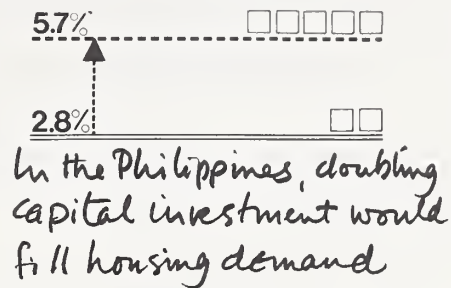 5.7%
2.8%
In the Philippines, doubling
capital investment would
fill housing demand